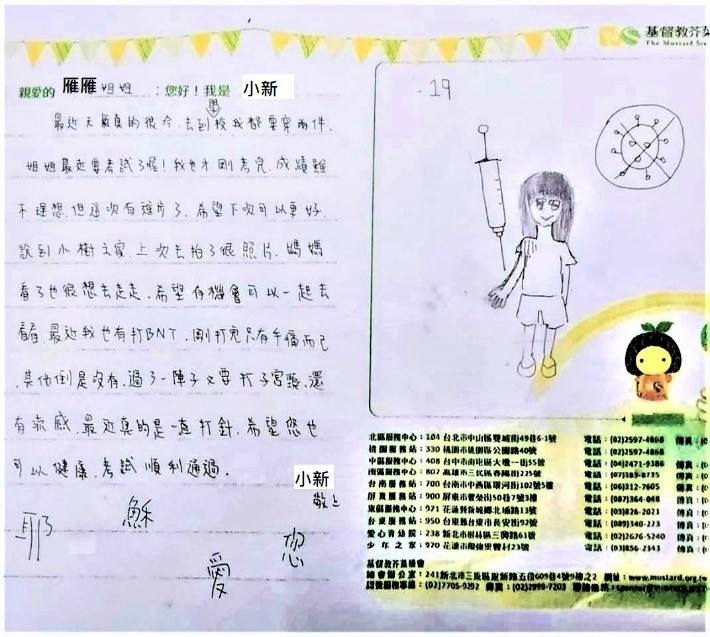 基督教芥菜
The Mustard See
親愛的 雁雁 姐姐 :您好!我是 小新
最近天氣真的很冷,去到學校我都要穿兩件,
姐姐最近要考試了喔!我也才剛考完,成績雖
不理想,但這次有進步了,希望下次可以更好,
說到小樹之家,上次去拍了很照片,媽媽
看了也很想去走走,希望有機會可以一起去
看看,最近我也有打BNT,剛打完只有手痛而已
,其他倒是沒有,過了一陣子又要打子宮頸,還
有流感,最近真的是一直打針,希望您也
可以健康,考試順利通過。
小新
敬上
耶穌愛您
-19
北區服務中心:104 台北市中山區雙城街49巷6-1號 電話:(02)2597-4868 傳真:(
桃園服務站:330 桃園市桃園區公園路40號 電話:(02)2597-4868
中區服務中心:408 台中市南屯區大墩一街55號 電話:(04)2471-9386 傳真:(
南區服務中心:807 高雄市三民區春陽街225號 電話:(07)385-8735 傳真:(
台南服務站:700 台南市中西區環河街102號5樓 電話:(06)312-7605 傳真:(
屏東服務站:900 屏東市豐榮街50巷7號3樓 電話:(087)364-048 傳真:(
東區服務中心:971 花蓮新城鄉北埔路13號 電話:(03)826-2021 傳真:(
台東服務站:950 台東縣台東市長安街92號 電話:(089)340-223 傳真:(
愛心育幼院:238 新北市樹林區三興路61號 電話:(02)2676-5240 傳真:(
少年之家:970 花蓮市 電話:(03)856-2343 傳真:(
基督教芥菜種會
總會辦公室:241新北市三重區重新路五段609巷4號9樓之2 網址:www.mustard.org.tw
認養服務專線:(02)7705-9292 傳真:(02)2999-7203